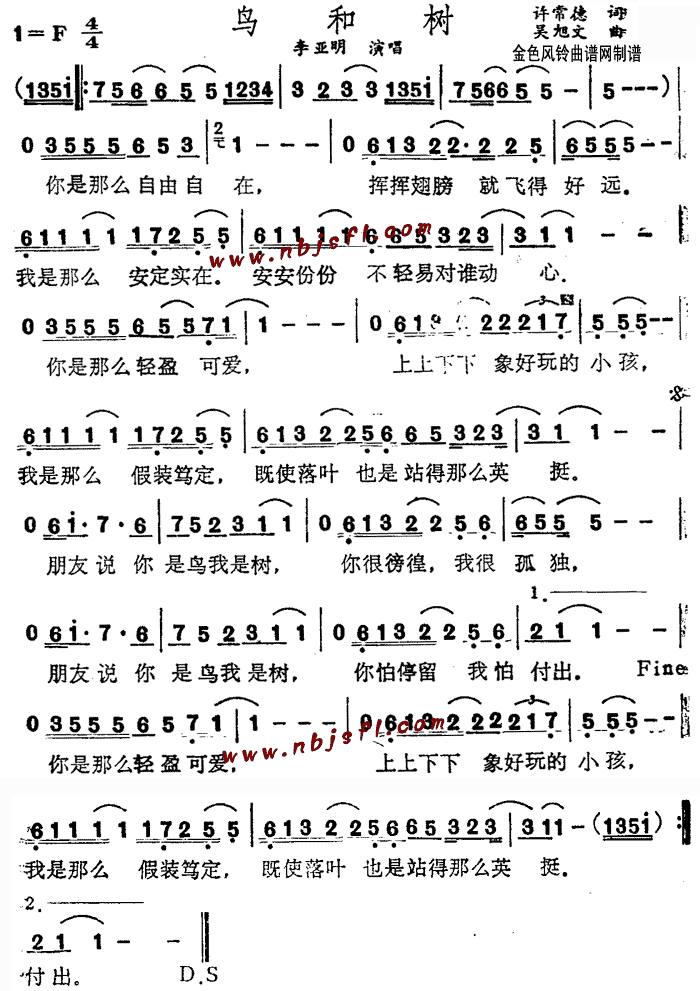 鸟和树
1=F 4/4
许常德 词
吴旭文 曲
李亚明 演唱
金色风铃曲谱网制谱
(1351 7566 5 5 1234 | 3 2 3 3 1351 | 75665 5 - | 5 - - - )
0 3555 5653 | 2 1 - - - | 0 6132 2· 2 2 5 | 6555 5 - -
你是那么自由自 在, 挥挥翅膀 就飞得好远.
6111 1 1725 5 | 6111 1 6 65323 | 3 1 1 - -
www.nbjsfl.com
我是那么 安定实在. 安安份份 不轻易对谁动 心.
0 3555 6 5 5 7 1 | 1 - - - | 0 61 222217 | 5 5 5 - -
你是那么轻盈 可爱, 上上下下 象好玩的小孩,
6111 1 1725 5 | 6132 256 65323 | 3 1 1 - -
我是那么 假装笃定, 既使落叶 也是站得那么英 挺.
0 61· 7· 6 | 75231 1 | 0 6132 2 5 6 | 655 5 - -
朋友说 你 是鸟我是树, 你很徬徨, 我很 孤 独,
1.
0 61· 7· 6 | 75231 1 | 0 6132 2 5 6 | 21 1 - -
朋友说 你 是鸟我是树, 你怕停留 我怕 付出. Fine
0 3555 6 5 7 1 | 1 - - - | 0 6132 222217 | 5 5 5 - -
www.nbjsfl.com
你是那么轻盈可爱, 上上下下 象好玩的小孩,
6111 1 1725 5 | 6132 256 65323 | 3 1 1 - (1351) :|
我是那么 假装笃定, 既使落叶 也是站得那么英 挺.
2.
21 1 - -
付出。 D.S